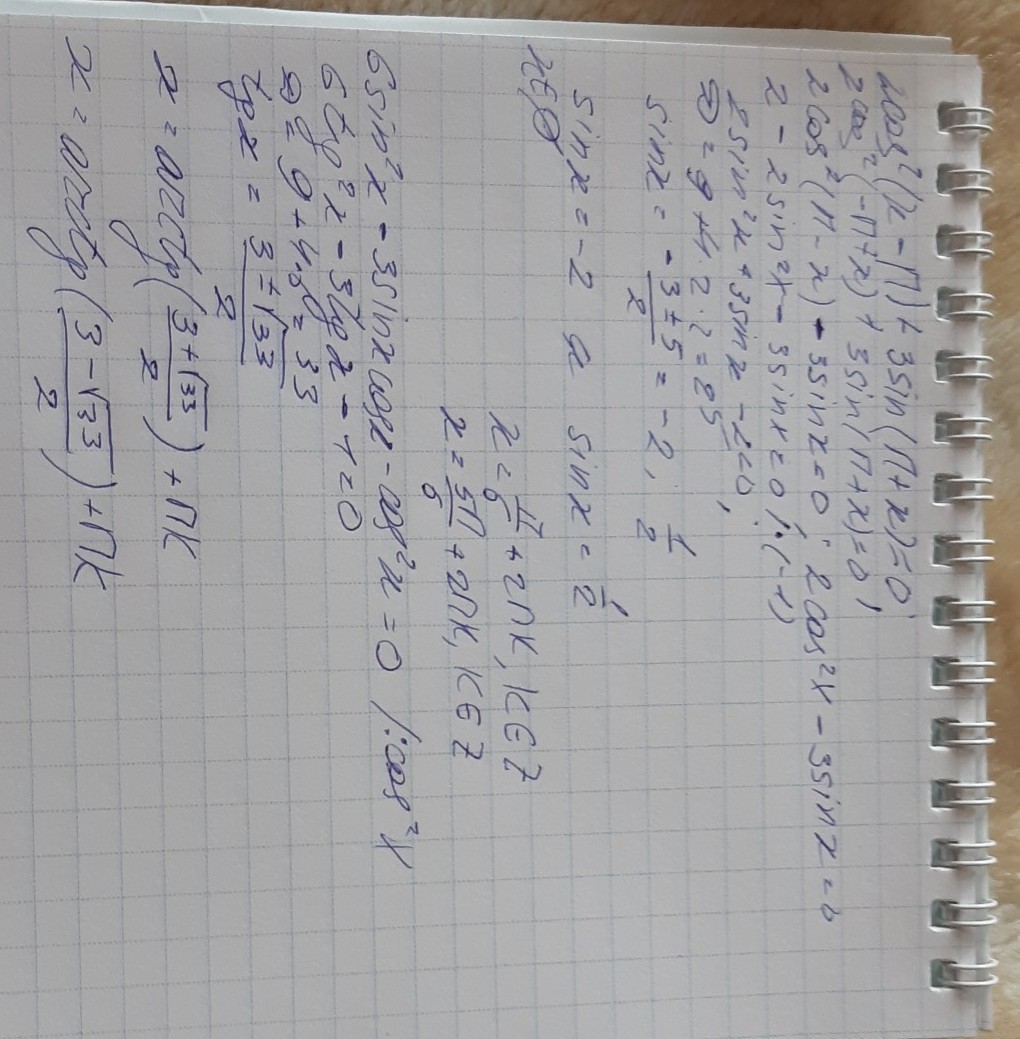 2cos²(x - П) + 3sin(П + x) = 0;
2cos²(-П + x) + 3sin(П + x) = 0;
2cos²(П - x) - 3sin x = 0; 2cos²x - 3sin x = 0
2 - 2sin²x - 3sin x = 0 /·(-1)
2sin²x + 3sin x - 2 = 0;
D = 9 + 4·2·2 = 25
sin x = (-3 ± 5)/2 = -2, 1/2
sin x = -2 и sin x = 1/2
x ∈ ∅
x = П/6 + 2Пk, k ∈ Z
x = 5П/6 + 2Пk, k ∈ Z
6sin²x - 3sin x cos x - cos²x = 0 /:cos²x
6tg²x - 3tg x - 1 = 0
D = 9 + 4·6 = 33
tg x = (3 ± √33)/2
x = arctg((3 + √33)/2) + Пk
x = arctg((3 - √33)/2) + Пk